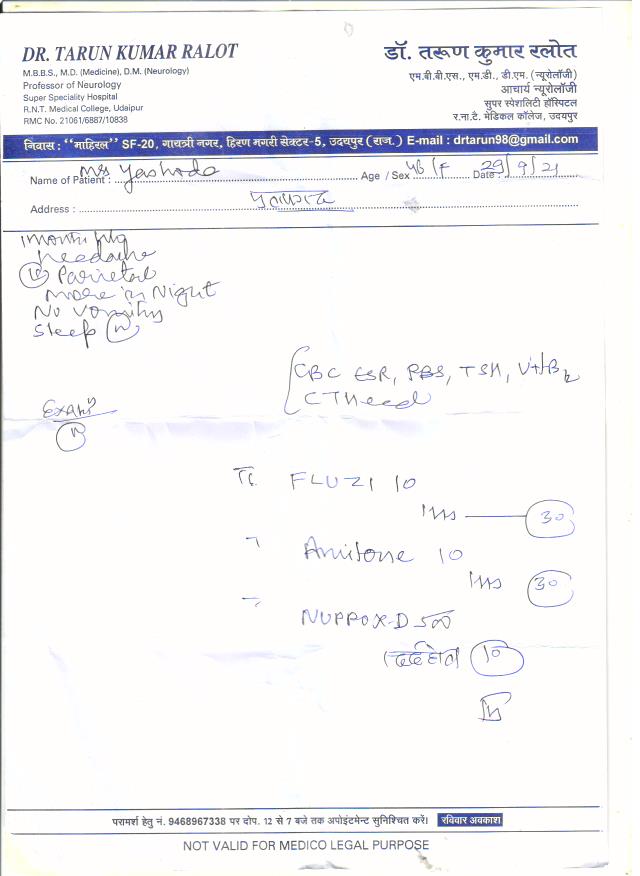 DR. TARUN KUMAR RALOT
M.B.B.S., M.D. (Medicine), D.M. (Neurology)
Professor of Neurology
Super Speciality Hospital
R.N.T. Medical College, Udaipur
RMC No. 21061/6887/10838
डॉ. तरूण कुमार रलोत
एम.बी.बी.एस., एम.डी., डी.एम. (न्यूरोलॉजी)
आचार्य न्यूरोलॉजी
सुपर स्पेशलिटी हॉस्पिटल
र.ना.टे. मेडिकल कॉलेज, उदयपुर
निवास : "माहिरल" SF-20, गायत्री नगर, हिरण मगरी सेक्टर-5, उदयपुर (राज.) E-mail : drtarun98@gmail.com
Name of Patient : Mrs Yashoda Age / Sex 46/F Date : 29/9/21
Address :
1 month
headache
Parietal
more in Night
No vomiting
Sleep (N)
CBC ESR, PBS, TSH, Vit B12
CT Head
Exam
(N)
FLUZI 10
1 HS 30
Amitone 10
1 HS 30
NUPROX-D 500
दर्द होने 10
परामर्श हेतु नं. 9468967338 पर दोप. 12 से 7 बजे तक अपोइंटमेन्ट सुनिश्चित करें। रविवार अवकाश
NOT VALID FOR MEDICO LEGAL PURPOSE